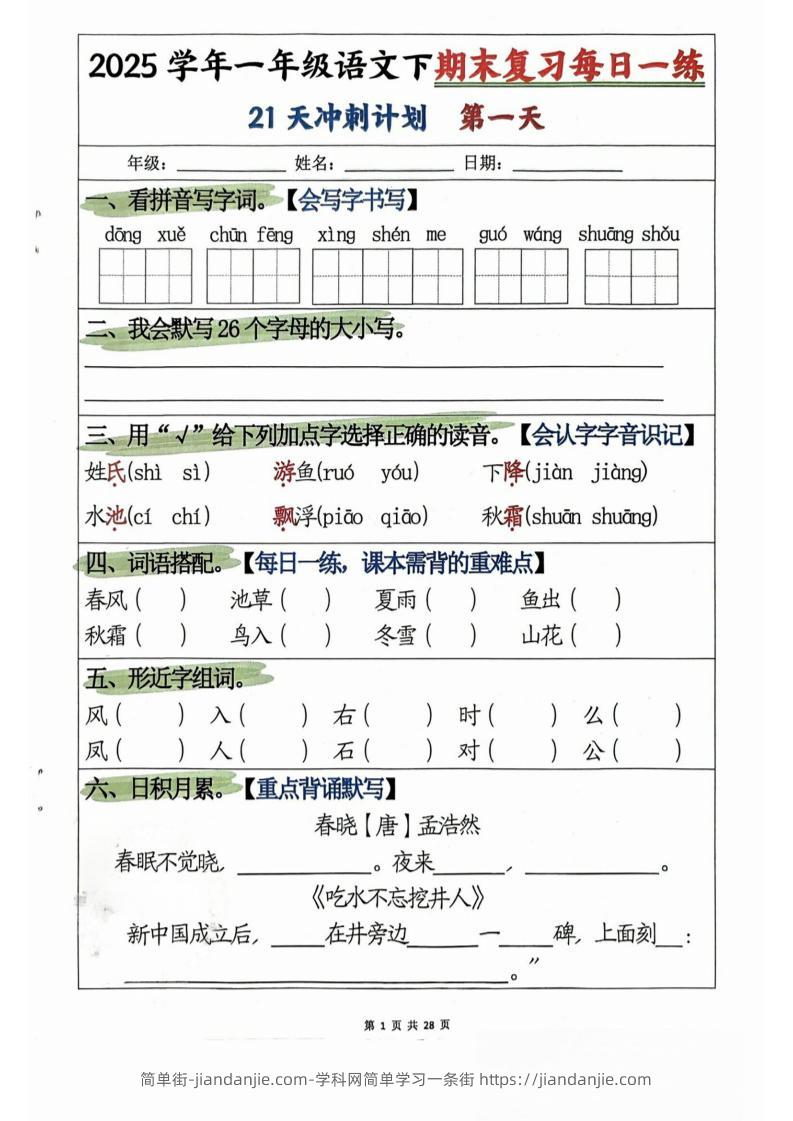 2025 学年一年级语文下期末复习每日一练
21 天冲刺计划 第一天
年级：____________ 姓名：____________ 日期：____________
一、看拼音写字词。【会写字书写】
dōng xuě chūn fēng xìng shén me guó wáng shuāng shǒu
二、我会默写 26 个字母的大小写。
三、用“√”给下列加点字选择正确的读音。【会认字字音识记】
姓氏(shì sì) 游鱼(ruó yóu) 下降(jiàn jiàng)
水池(cí chí) 飘浮(piāo qiāo) 秋霜(shuān shuāng)
四、词语搭配。【每日一练，课本需背的重难点】
春风（ ） 池草（ ） 夏雨（ ） 鱼出（ ）
秋霜（ ） 鸟入（ ） 冬雪（ ） 山花（ ）
五、形近字组词。
风（ ） 入（ ） 右（ ） 时（ ） 么（ ）
凤（ ） 人（ ） 石（ ） 对（ ） 公（ ）
六、日积月累。【重点背诵默写】
春晓【唐】孟浩然
春眠不觉晓，____________。夜来______，____________。
《吃水不忘挖井人》
新中国成立后，_____在井旁边______一_____碑，上面刻__：
____________________________________。”
第 1 页 共 28 页
简单街-jiandanjie.com-学科网简单学习一条街 https://jiandanjie.com